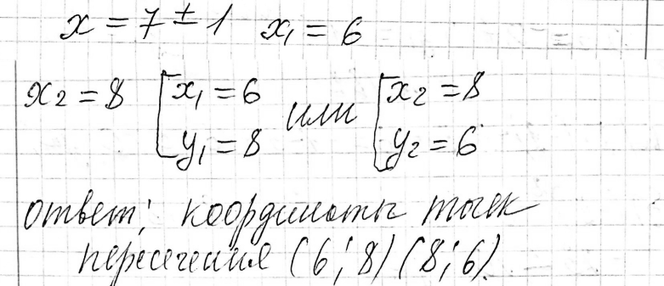 x = 7 ± 1   x₁ = 6
x₂ = 8   [x₁ = 6   или   [x₂ = 8
y₁ = 8   y₂ = 6
ответ: координаты точек
пересечения (6; 8) (8; 6).